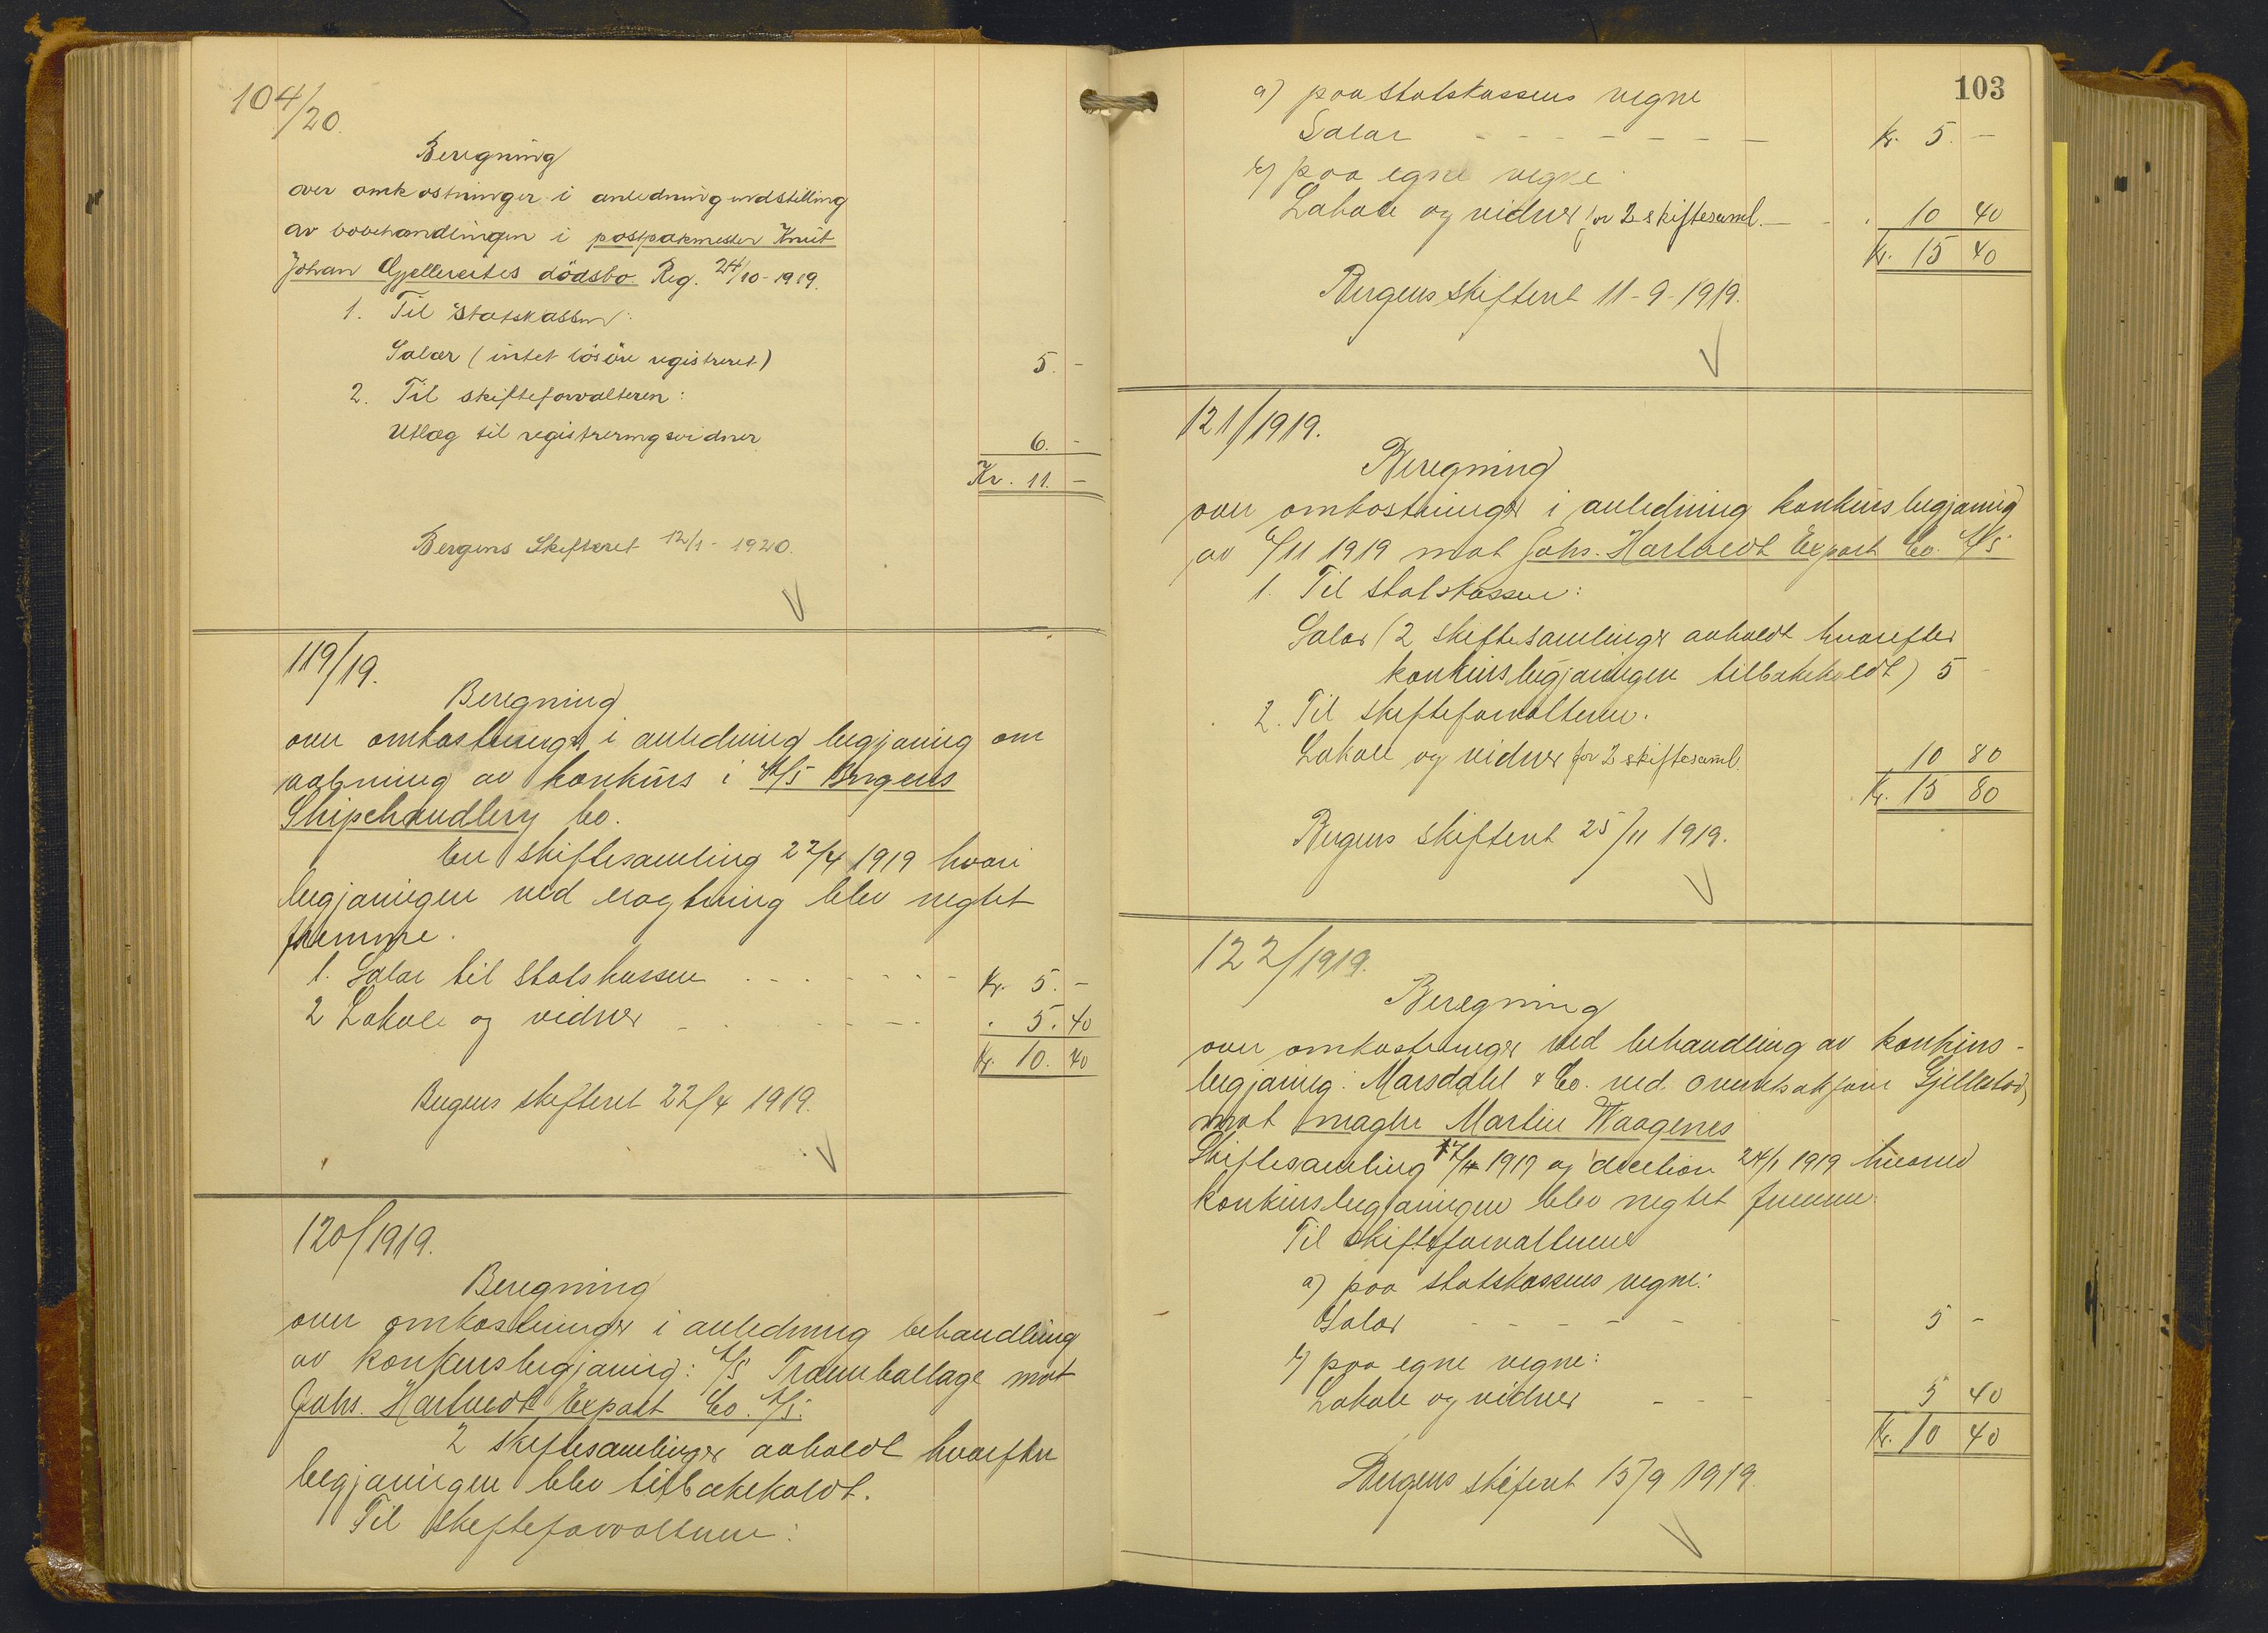 104/20.
Beregning
over omkostninger i anledning indstilling
av bobehandlingen i postpakmester Knut
Johan Gjellerertes dödsbo. Reg. 24/10-1919.
1. Til statskassen:
Salær (intet lösöre registreret) 5. -
2. Til skifteforvalteren:
Utlæg til registreringsvidner 6. -
Kr. 11. -
Bergens Skifteret 12/1 - 1920.
119/19.
Beregning
over omkostninger i anledning begjæring om
aabning av konkurs i A/S Bergens
Shipchandlery Co.
En skiftesamling 22/4 1919 hvori
begjæringen ved eragtning blev negtet
fremme.
1. Salær til statskassen Kr. 5. -
2 Lokale og vidner " 5. 40
Kr. 10. 40
Bergens skifteret 22/4 1919.
120/1919.
Beregning
over omkostninger i anledning behandling
av konkursbegjæring: A/S Træemballage mot
Johs. Hartvedt Export Co. A/S.
2 skiftesamlinger avholdt hvorefter
begjæringen blev tilbakekaldt.
Til skifteforvalteren:
103
a) paa statskassens vegne
Salær - - - - - - - Kr. 5. -
b) paa egne vegne
Lokale og vidner for 2 skiftesaml. - " 10 40
Kr. 15 40
Bergens skifteret 11-9-1919.
121/1919.
Beregning
over omkostninger i anledning konkursbegjæring
av /11 1919 mot Johs. Hartvedt Export Co. A/S
1. Til statskassen:
Salær (2 skiftesamlinger avholdt hvorefter
konkursbegjæringen tilbakekaldt) 5 -
2. Til skifteforvalteren.
Lokale og vidner for 2 skiftesaml. 10 80
Kr. 15 80
Bergens skifteret 25/11 1919.
122/1919.
Beregning
over omkostninger ved behandling av konkurs-
begjæring: Marsdahl & Co. ved overretssakförer
mot mægler Martin Waagenes
Skiftesamling 17/4 1919 og decition 24/ 1919 hvorved
konkursbegjæringen blev negtet fremme.
Til skifteforvalteren
a) paa statskassens vegne:
Salær - - - - - - - 5 -
b) paa egne vegne:
Lokale og vidner - - - - 5 40
Kr. 10 40
Bergens skifteret 15/9 1919.